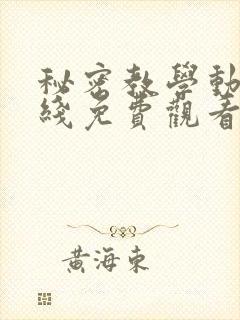 秘密教學動
綫免費觀看
黃海東